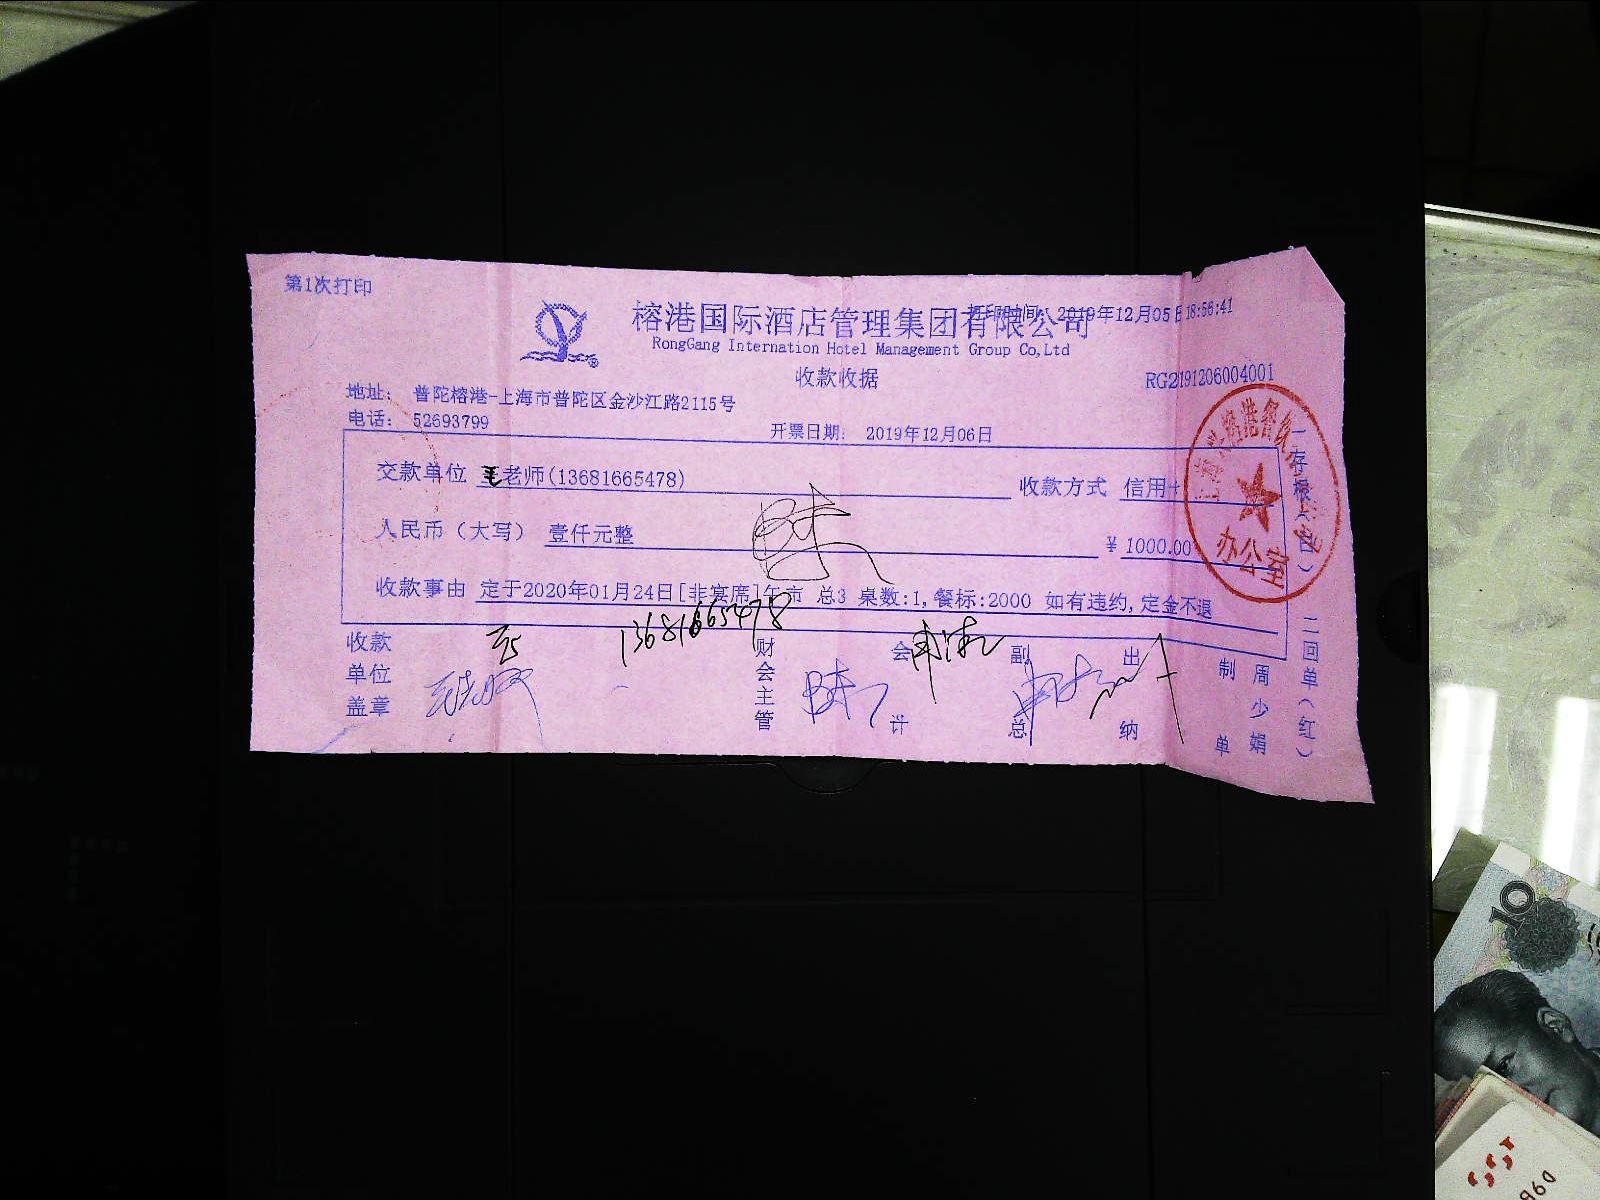 第1次打印
榕港国际酒店管理集团有限公司
打印时间: 2019年12月05日 18:56:41
RongGang Internation Hotel Management Group Co,Ltd
收款收据
RG2191206004001
地址: 普陀榕港-上海市普陀区金沙江路2115号
电话: 52693799
开票日期: 2019年12月06日
交款单位 老师(13681665478) 收款方式 信用卡
人民币（大写） 壹仟元整 ¥ 1000.00
收款事由 定于2020年01月24日[非宴席]午市 总3 桌数:1,餐标:2000 如有违约,定金不退
13681665478
收款单位盖章
财会主管
会计
副总
出纳
制单
周少娟
一存根(白)
二回单(红)
办公室
10